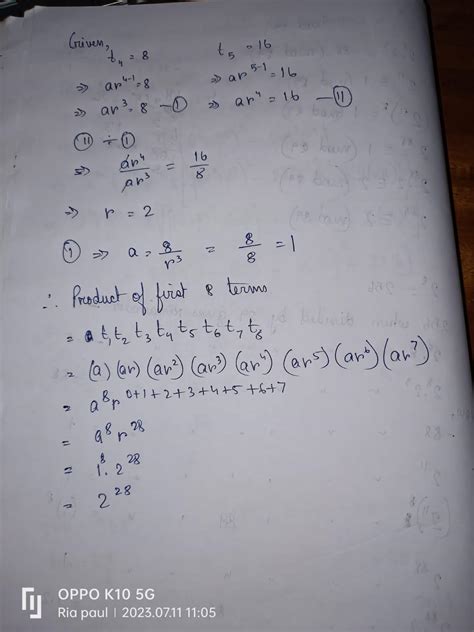 Given,
t₄ = 8 t₅ = 16
⇒ ar⁴⁻¹ = 8 ⇒ ar⁵⁻¹ = 16
⇒ ar³ = 8 —Ⓘ ⇒ ar⁴ = 16 —Ⓘⓘ
(II) ÷ (I)
⇒ ar⁴/ar³ = 16/8
⇒ r = 2
(I) ⇒ a = 8/r³ = 8/8 = 1
∴ Product of first 8 terms
= t₁ t₂ t₃ t₄ t₅ t₆ t₇ t₈
= (a) (ar) (ar²) (ar³) (ar⁴) (ar⁵) (ar⁶) (ar⁷)
= a⁸ r⁰⁺¹⁺²⁺³⁺⁴⁺⁵⁺⁶⁺⁷
= a⁸ r²⁸
= 1⁸ . 2²⁸
= 2²⁸
OPPO K10 5G
Ria paul | 2023.07.11 11:05